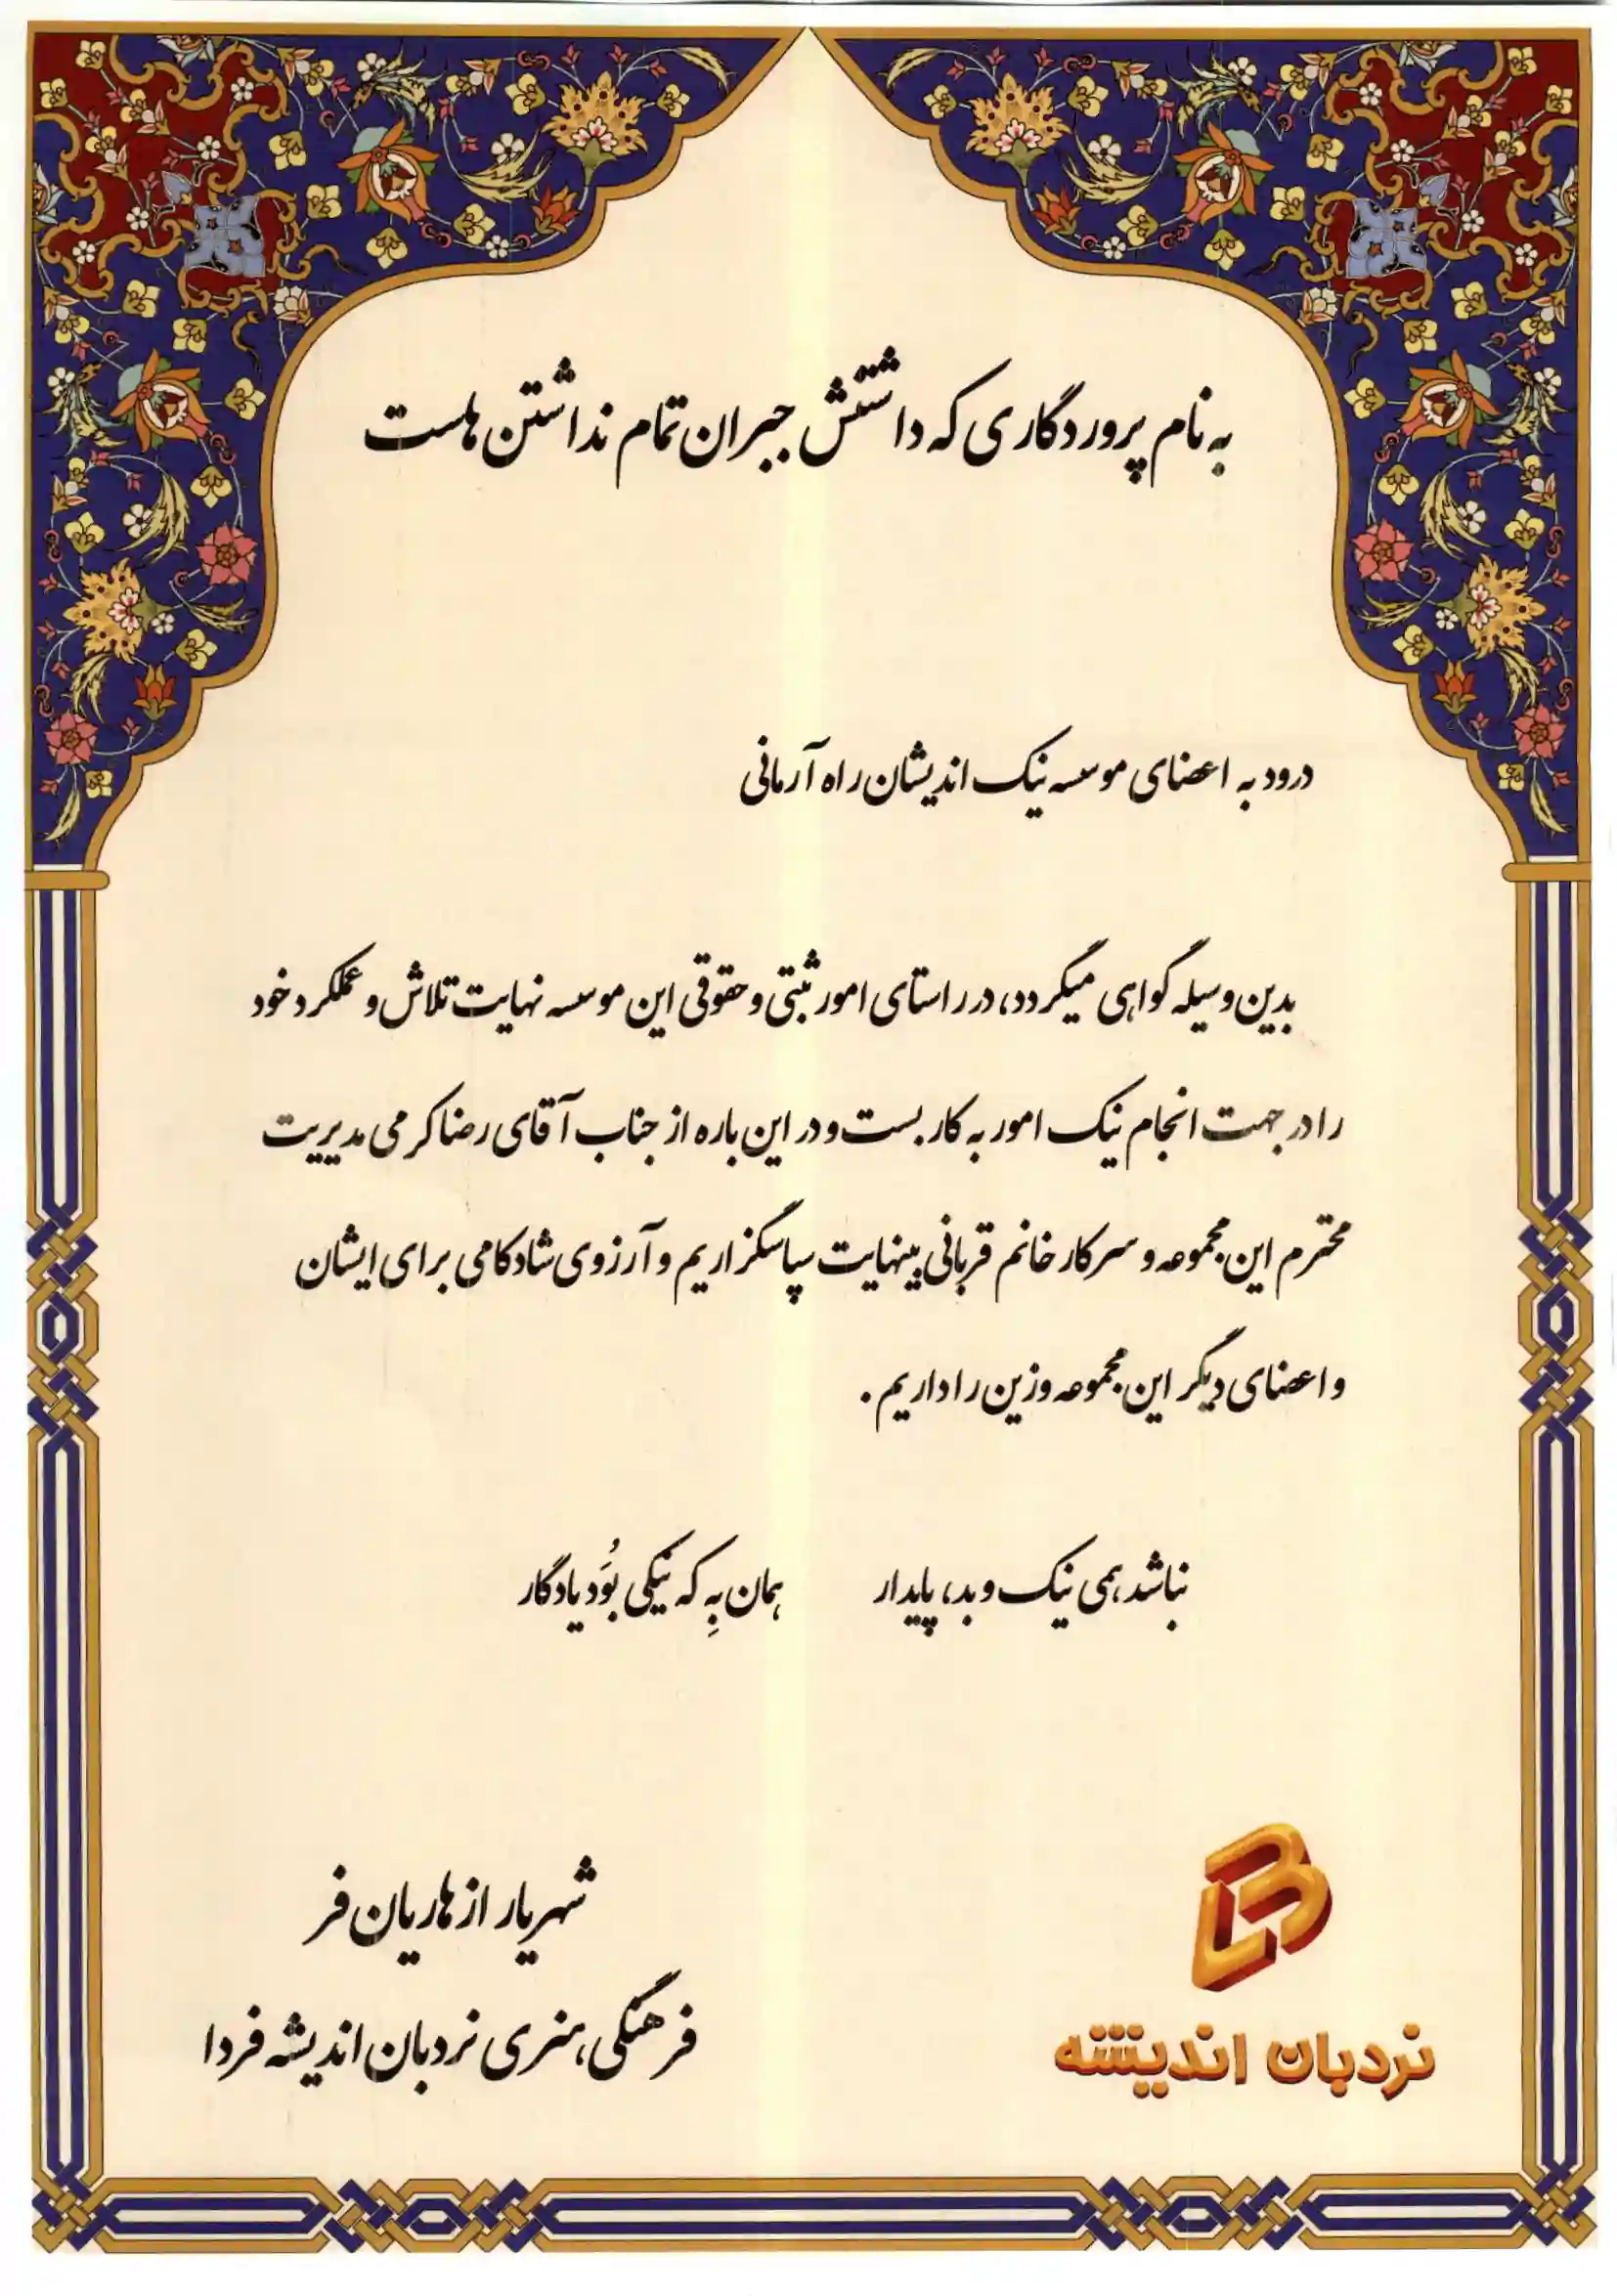 به نام پروردگاری که داشتنش جبران تمام نداشتن هاست
درود به اعضای موسسه نیک اندیشان راه آرمانی
بدین وسیله گواهی میگردد، در راستای امور ثبتی و حقوقی این موسسه نهایت تلاش و عملکرد خود
را در جهت انجام نیک امور به کار بست و در این باره از جناب آقای رضا کرمی مدیریت
محترم این مجموعه و سرکار خانم قربانی بینهایت سپاسگزاریم و آرزوی شادکامی برای ایشان
و اعضای دیگر این مجموعه وزین را داریم.
نباشد همی نیک و بد، پایدار همان بِه که نیکی بُوَد یادگار
شهریار ازهاریان فر
فرهنگی، هنری نردبان اندیشه فردا
نردبان اندیشه